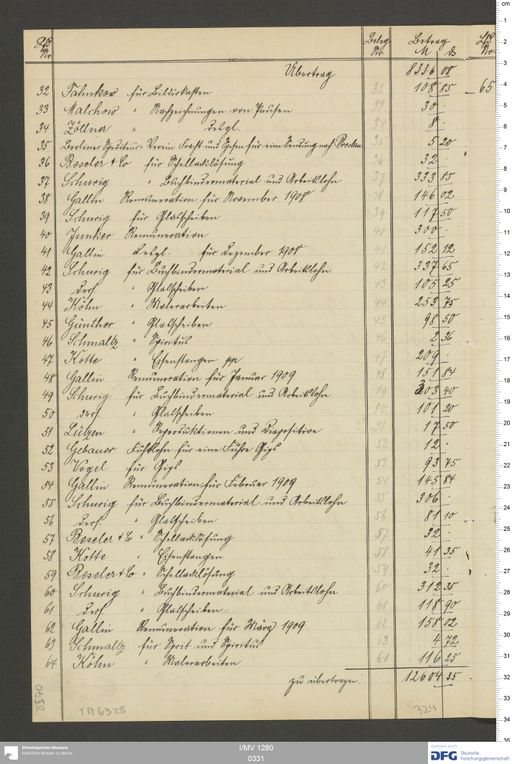 Lfd Nr. Beleg Nr. Betrag M ₰ Lfd Nr.
Übertrag 8336 08
32 Tahnkow für Bilderkasten 32 108 85 65
33 Malchow " Nachzeichnungen von Pausen 33 30 .
34 Zöllner " desgl. 34 8 .
35 Berliner Spediteur-Verein Fracht und Spesen für eine Sendung nach Dresden 35 5 20
36 Beseler & Co für Schellacklösung 36 32 .
37 Schurig " Buchbindermaterial und Arbeitslohn 37 333 85
38 Gallin Remuneration für November 1908 38 146 02
39 Schurig für Glasscheiben 39 117 50
40 Junker Remuneration 40 300 .
41 Gallin desgl. für Dezember 1908 41 152 12
42 Schurig für Buchbindermaterial und Arbeitslohn 42 337 65
43 ders. " Glasscheiben 43 105 25
44 Köhn " Malerarbeiten 44 253 75
45 Günther " Glasscheiben 45 98 50
46 Schmaltz " Spiritus 46 2 36
47 Kotte " Eisenstangen pp 47 209 .
48 Gallin Remuneration für Januar 1909 48 151 84
49 Schurig für Buchbindermaterial und Arbeitslohn 49 303 40
50 ders. " Glasscheiben 50 101 20
51 Lützen " Reproduktionen und Diapositive 51 17 50
52 Gebauer Fuhrlohn für eine Fuhre Gips 52 12 .
53 Vogel für Gips 53 93 75
54 Gallin Remuneration für Februar 1909 54 145 84
55 Schurig für Buchbindermaterial und Arbeitslohn 55 306 .
56 ders. " Glasscheiben 56 81 10
57 Beseler & Co " Schellacklösung 57 32 .
58 Kotte " Eisenstangen 58 41 35
59 Beseler & Co " Schellacklösung 59 32 .
60 Schurig " Buchbindermaterial und Arbeitslohn 60 312 35
61 ders. " Glasscheiben 61 118 90
62 Gallin Remuneration für März 1909 62 158 02
63 Schmaltz für Sprit und Spiritus 63 4 72
64 Köhn " Malerarbeiten 64 116 25
zu übertragen: 12604 35
I/MV 1280
0331
Ethnologisches Museum
Staatliche Museen zu Berlin
DFG Deutsche Forschungsgemeinschaft